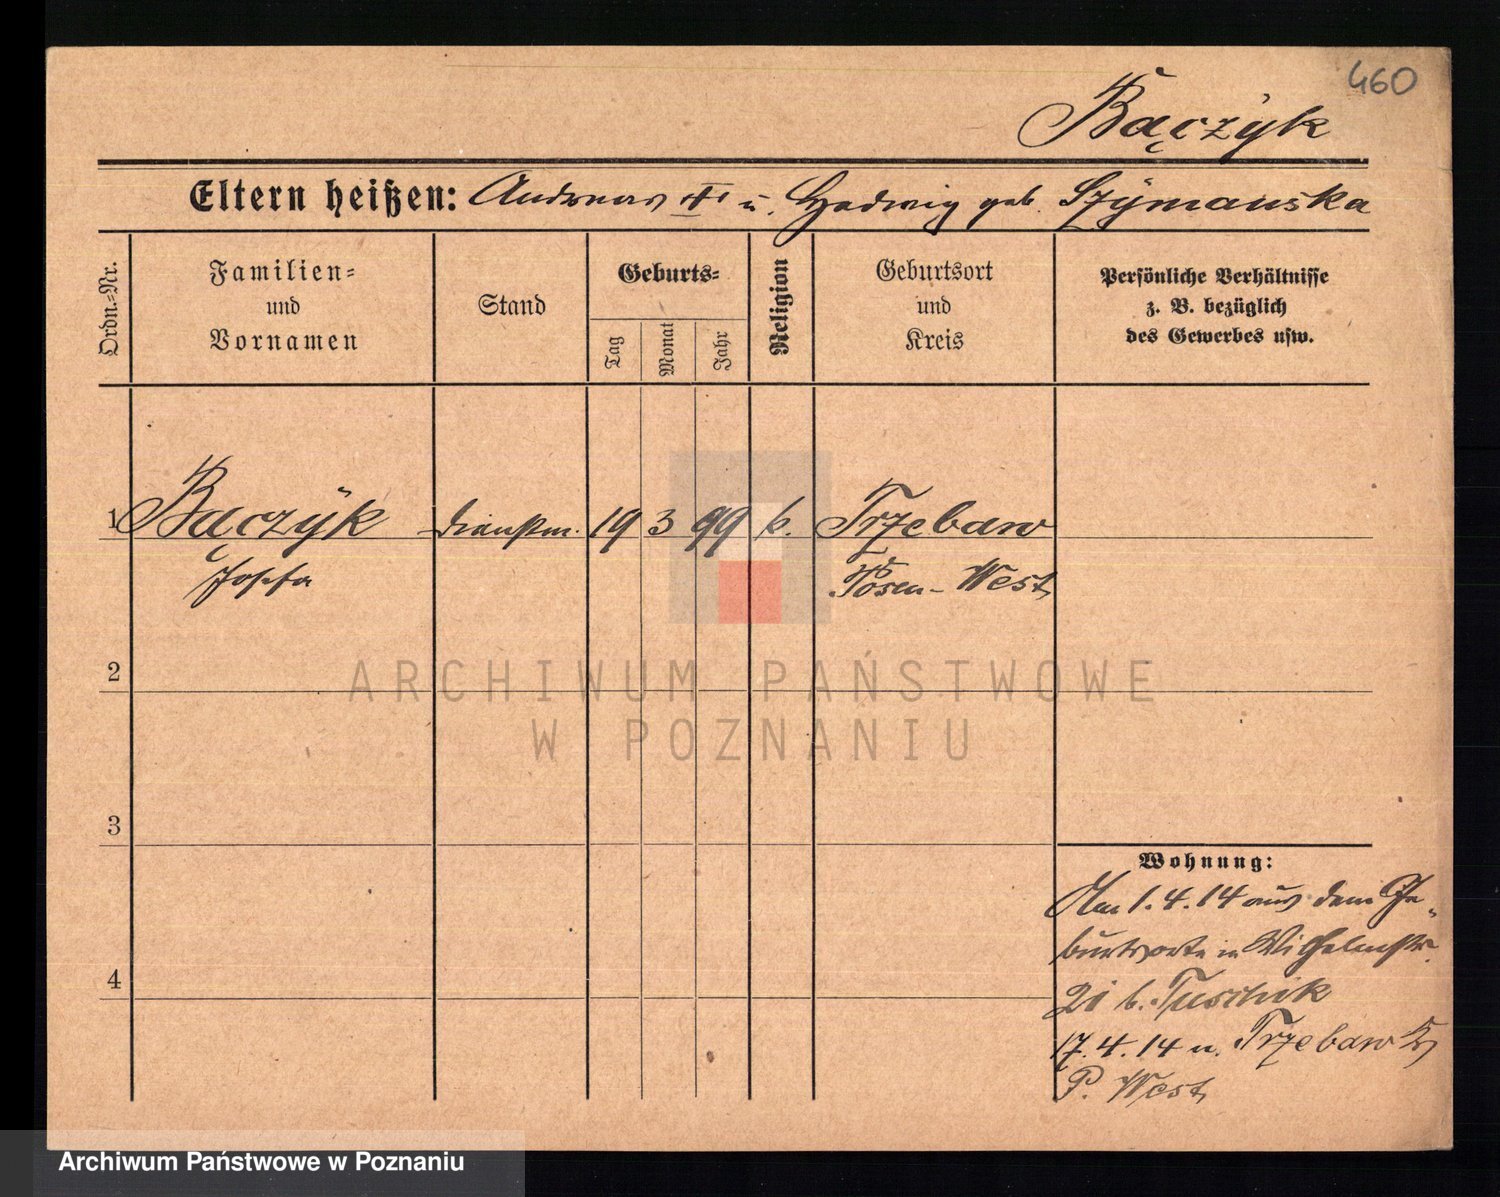 460
Bączÿk
Eltern heißen: Andreas u. Hedwig geb. Szÿmanska
Ordn.=Nr.
Familien=
und
Vornamen
Stand
Geburts=
Tag
Monat
Jahr
Religion
Geburtsort
und
Kreis
Persönliche Verhältnisse
z. B. bezüglich
des Gewerbes usw.
1 Bączÿk Dienstm. 19 3 99 k. Trzebaw
Josefa Posen-West
2
ARCHIWUM PAŃSTWOWE
W POZNANIU
3
Wohnung:
Am 1.4.14 aus dem Ge-
burtsorte in Wilhelmstr.
4
21 b. Tuschik
17.4.14 n. Trzebaw Kr
P. West
Archiwum Państwowe w Poznaniu